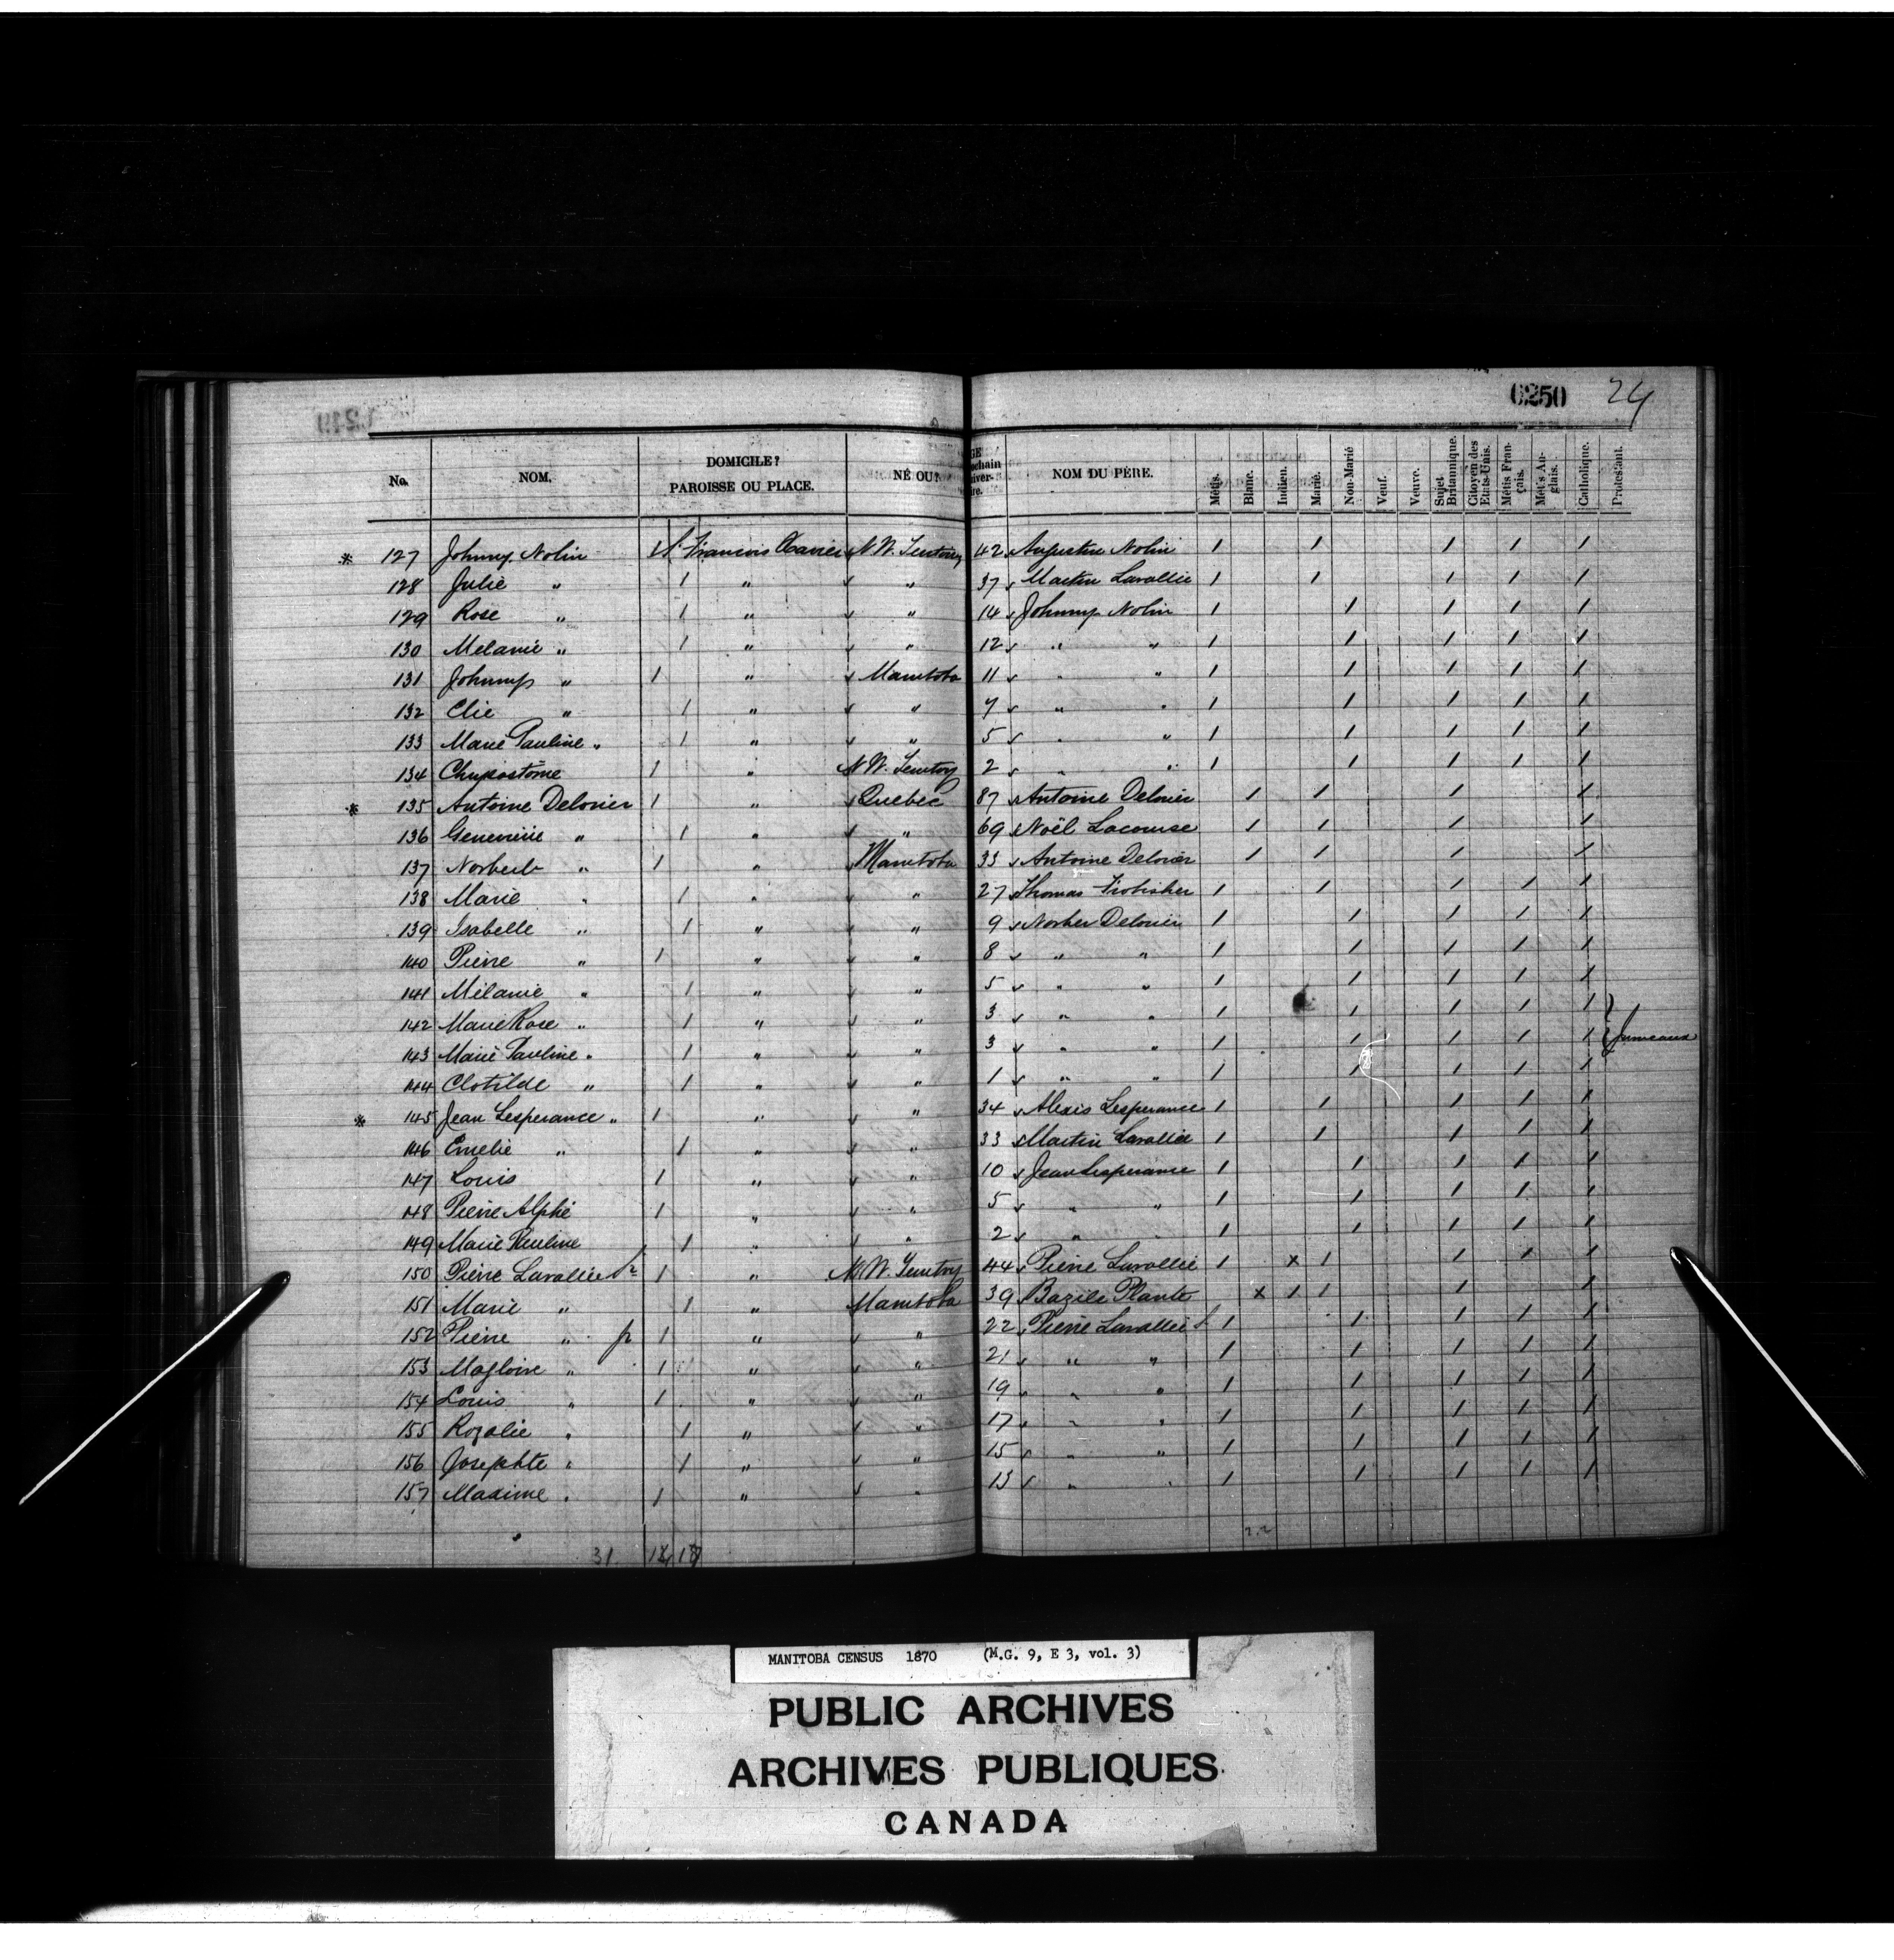 6250 24
No. NOM. DOMICILE? PAROISSE OU PLACE. NÉ OU? NOM DU PÈRE. Métis. Blanc. Indien. Marié. Non-Marié Veuf. Veuve. Sujet Britannique. Citoyen des Etats-Unis. Métis Français. Métis Anglais. Catholique. Protestant.
* 127 Johnny Nolin St François Xavier N.W. Territory 42 Augustin Nolin 1 1 1 1 1
128 Julie " 1 " " 37 Martin Lavallée 1 1 1 1 1
129 Rose " 1 " " 14 Johnny Nolin 1 1 1 1 1
130 Melanie " 1 " " 12 " " 1 1 1 1 1
131 Johnny " 1 " Manitoba 11 " " 1 1 1 1 1
132 Elie " 1 " " 7 " " 1 1 1 1 1
133 Marie Pauline " 1 " " 5 " " 1 1 1 1 1
134 Chrysostôme 1 " N.W. Territory 2 " " 1 1 1 1 1
* 135 Antoine Delorier 1 " Quebec 87 Antoine Delorier 1 1 1 1
136 Genevieve " 1 " " 69 Noël Lacourse 1 1 1 1
137 Norbert " 1 " Manitoba 33 Antoine Delorier 1 1 1 1
138 Marie " 1 " " 27 Thomas Frobisher 1 1 1 1 1
139 Isabelle " 1 " " 9 Norber Delorier 1 1 1 1 1
140 Pierre " 1 " " 8 " " 1 1 1 1 1
141 Mélanie " 1 " " 5 " " 1 1 1 1 1
142 Marie Rose " 1 " " 3 " " 1 1 1 1 1
143 Marie Pauline " 1 " " 3 " " 1 1 1 1 1 } Jumeaux
144 Clotilde " 1 " " 1 " " 1 1 1 1 1
* 145 Jean Lesperance " 1 " " 34 Alexis Lesperance 1 1 1 1 1
146 Emelie " 1 " " 33 Martin Lavallée 1 1 1 1 1
147 Louis 1 " " 10 Jean Lesperance 1 1 1 1 1
148 Pierre Alphé 1 " " 5 " " 1 1 1 1 1
149 Marie Pauline 1 " " 2 " " 1 1 1 1 1
150 Pierre Lavallée Sr 1 " N.W. Territory 44 Pierre Lavallée 1 x 1 1 1 1
151 Marie " 1 " Manitoba 39 Bazile Plante x 1 1 1 1
152 Pierre " jr 1 " " 22 Pierre Lavallée S. 1 1 1 1 1
153 Magloire " 1 " " 21 " " 1 1 1 1 1
154 Louis " 1 " " 19 " " 1 1 1 1 1
155 Rozalie " 1 " " 17 " " 1 1 1 1 1
156 Josephte " 1 " " 15 " " 1 1 1 1 1
157 Maxime " 1 " " 13 " " 1 1 1 1 1
31
MANITOBA CENSUS 1870 (M.G. 9, E 3, vol. 3)
PUBLIC ARCHIVES
ARCHIVES PUBLIQUES
CANADA